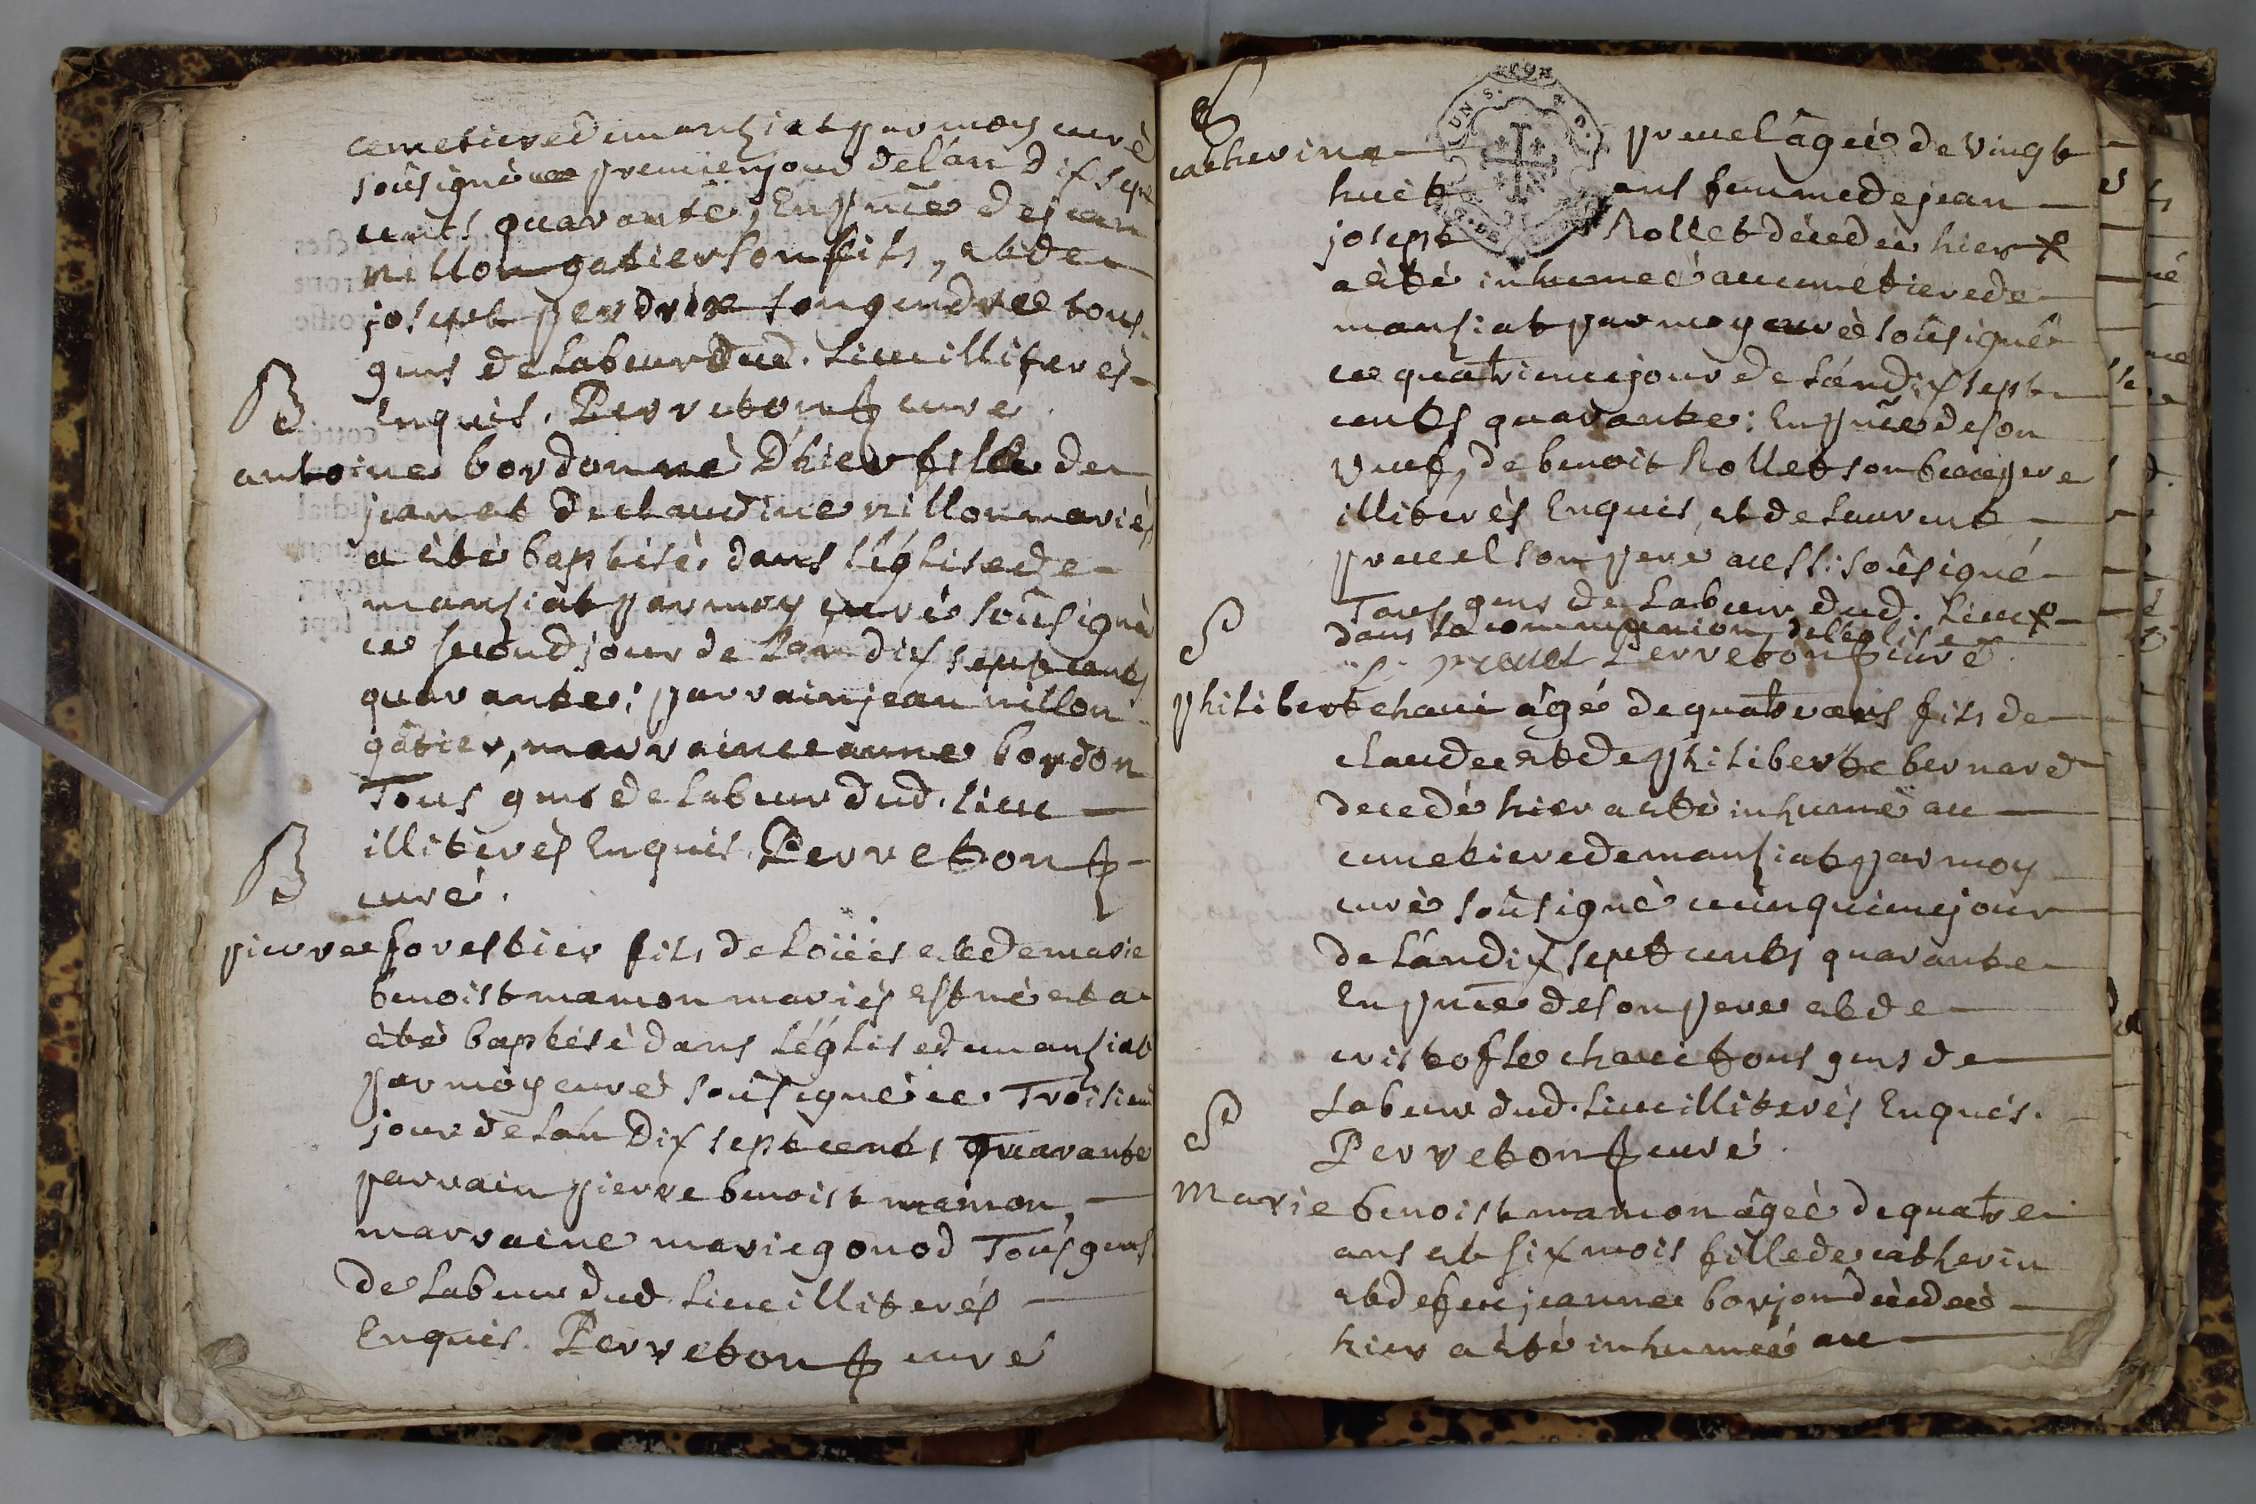 cemetiere de manziat par moy curé
soûsigné ce premier jour de l'an dix sept
cents quarante, En pnce de jean
nillon gatier son fils, et de
joseph perdrix son gendre tous
gens de labeur dud. lieu illiterés
Enquis. Perreton curé
B
antoine bordon né d'hier fils de
jean et de claudine nillon mariés
a été baptisé dans l'églisede
manziat par moy curé soûsigné
ce second jour de l'an dix sept cents
quarante; parrain jean nillon
gâtier, marraine anne bordon
Tous gens de labeur dud. lieu
illiterés Enquis Perreton
curé.
B
pierre forestier fils de loüis et de marie
benoist mamon mariés est né et a
été baptésé dans l'églisedemanziat
par moy curé soûsigné ce Troisieme
jour de l'an Dix sept cents quarante
parrain pierre benoist mamon,
marraine marie gonod Tous gens
de labeur dud lieu illiterés
Enquis. Perreton curé
S
catherine pruel âgée de vingt
huit ans femme de jean
joseph Rollet décedée hier
a été inhumée au cimetierede
manziat par moy curé soûsigné
ce quatrieme jour de l'an dix sept
cents quarante: En pnce de son
veuf, de benoit Rollet son beaupere
illiterés Enquis, et de laurent
pruel son pere aussi soûsigné
Tous gens de labeur dud. lieu
dans la communion de l'eglise
L. pruel Perreton curé
S
philibert chavi âgé de quatre ans fils de
claude et de philiberte bernard
decedé hier a été inhumé au
cimetieredemanziat par moy
curé soûsigné ce cinquieme jour
de l'an dix sept cents quarante
En pnce de son pere et de
cristofle chavi tous gens de
Labeur dud. lieu illiterés Enquis.
Perreton curé.
S
Marie benoist mamon âgée de quatre
ans et six mois fille de catherin
et de feue jeanne borjon décedée
hier a été inhumée au